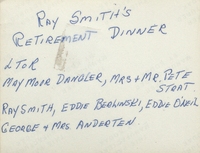 RAY SMITH'S
RETIREMENT DINNER
LTOR
MAY MOOR DANDLER, MRS & MR. PETE
STRAT
RAY SMITH, EDDIE BERLINSKI, EDDIE O'NEIL
GEORGE & MRS. ANDERTEN